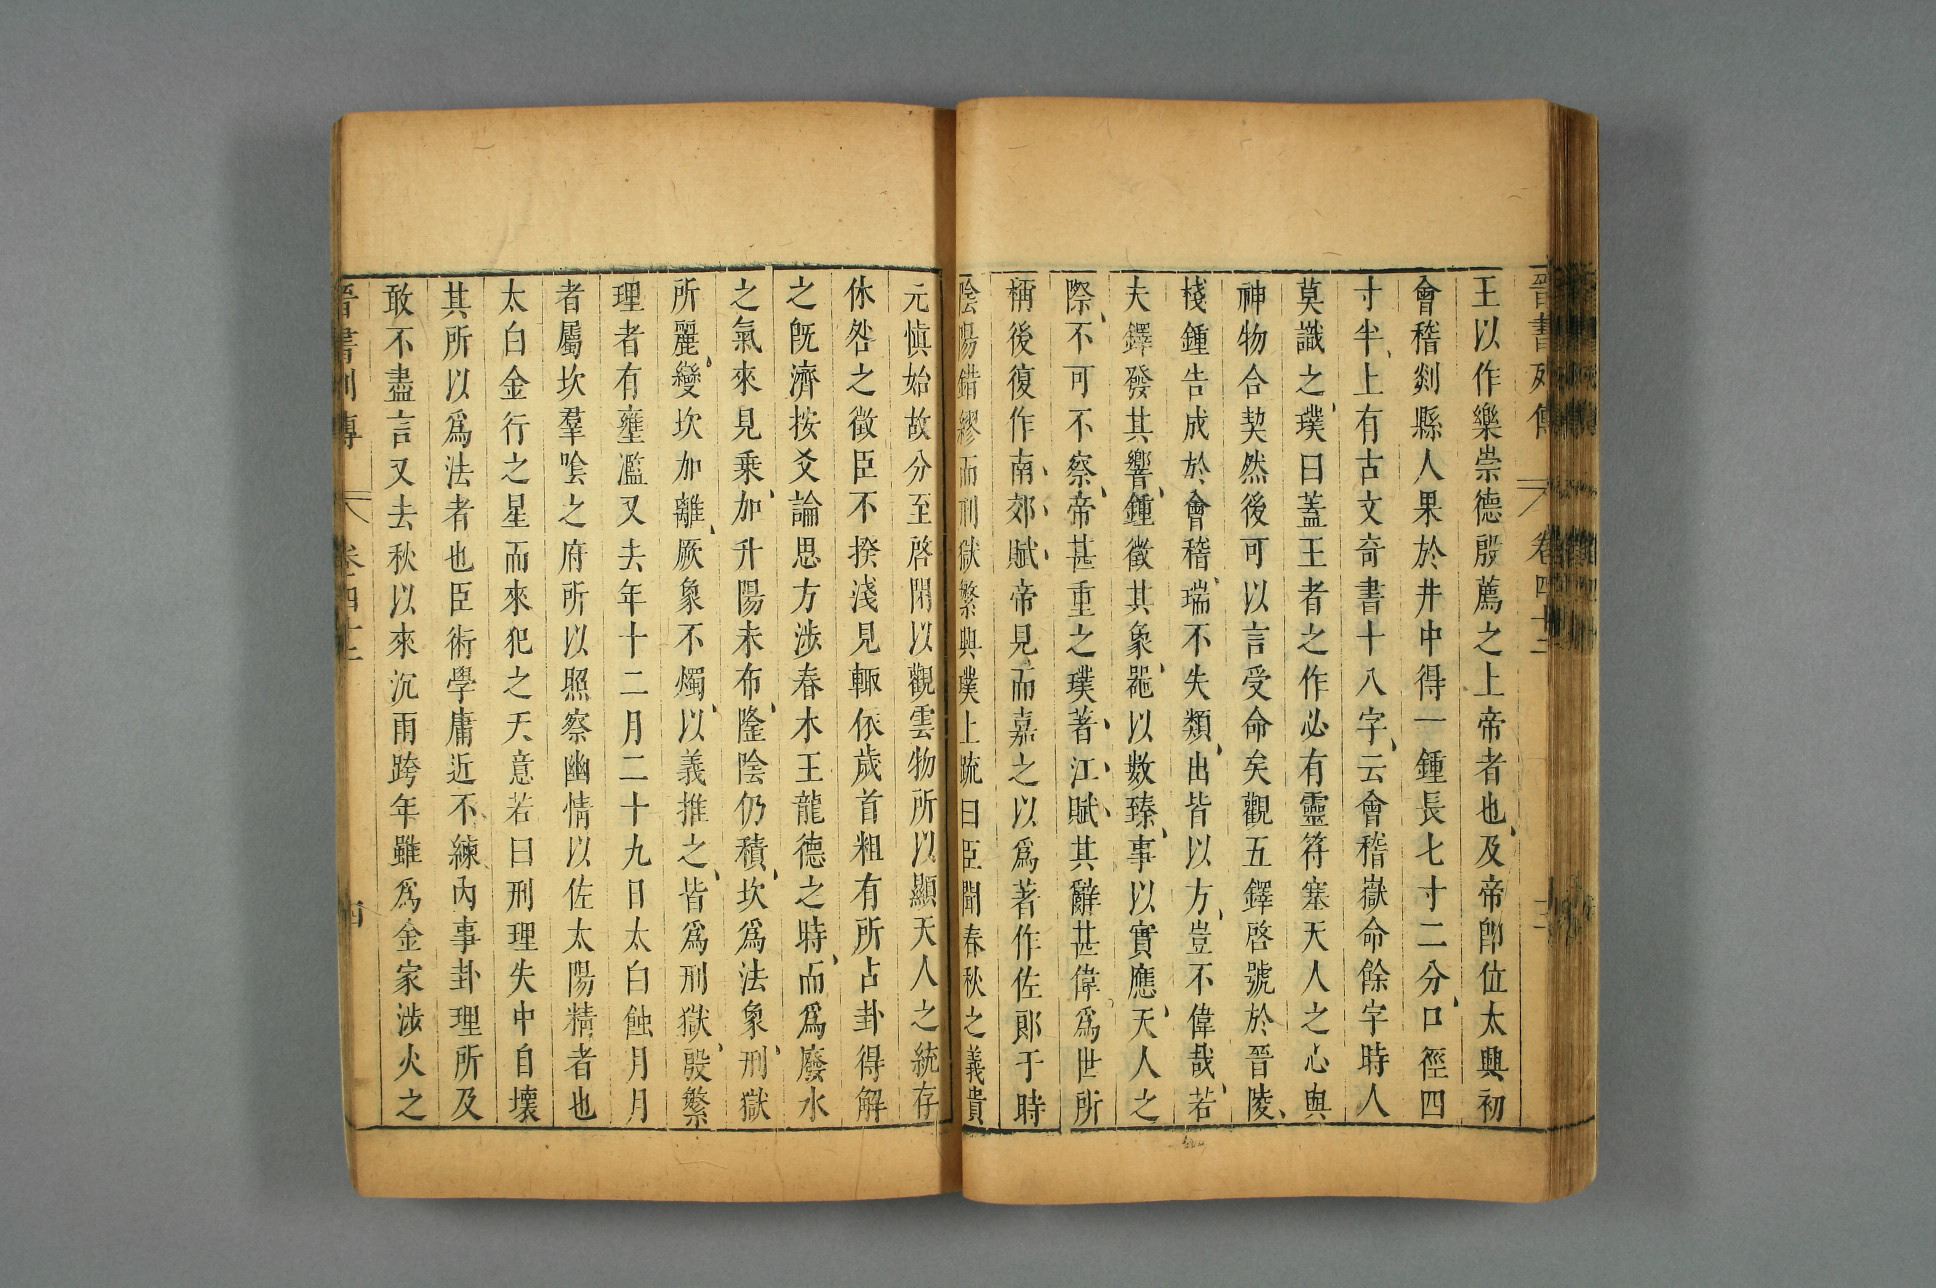 晉書列傳 卷四十二
王以作樂崇德殷薦之上帝者也及帝卽位太興初
會稽剡縣人果於井中得一鍾長七寸二分口徑四
寸半上有古文奇書十八字云會稽嶽命餘字時人
莫識之璞曰蓋王者之作必有靈符塞天人之心與
神物合契然後可以言受命矣觀五鐸啓號於晉陵
棧鍾告成於會稽瑞不失類出皆以方豈不偉哉若
夫鐸發其響鍾徵其象器以數臻事以實應天人之
際不可不察帝甚重之璞著江賦其辭甚偉爲世所
稱後復作南郊賦帝見而嘉之以爲著作佐郞于時
陰陽錯繆而刑獄繁興璞上疏曰臣聞春秋之義貴
元愼始故分至啓閉以觀雲物所以顯天人之統存
休咎之徵臣不揆淺見輒依歲首粗有所占卦得解
之旣濟按爻論思方涉春木王龍德之時而爲廢水
之氣來見乘加升陽未布隆陰仍積坎爲法象刑獄
所麗變坎加離厥象不燭以義推之皆爲刑獄殷繁
理者有壅濫又去年十二月二十九日太白蝕月月
者屬坎羣陰之府所以照察幽情以佐太陽精者也
太白金行之星而來犯之天意若曰刑理失中自壞
其所以爲法者也臣術學庸近不練內事卦理所及
敢不盡言又去秋以來沉雨跨年雖爲金家涉火之
晉書列傳 卷四十二